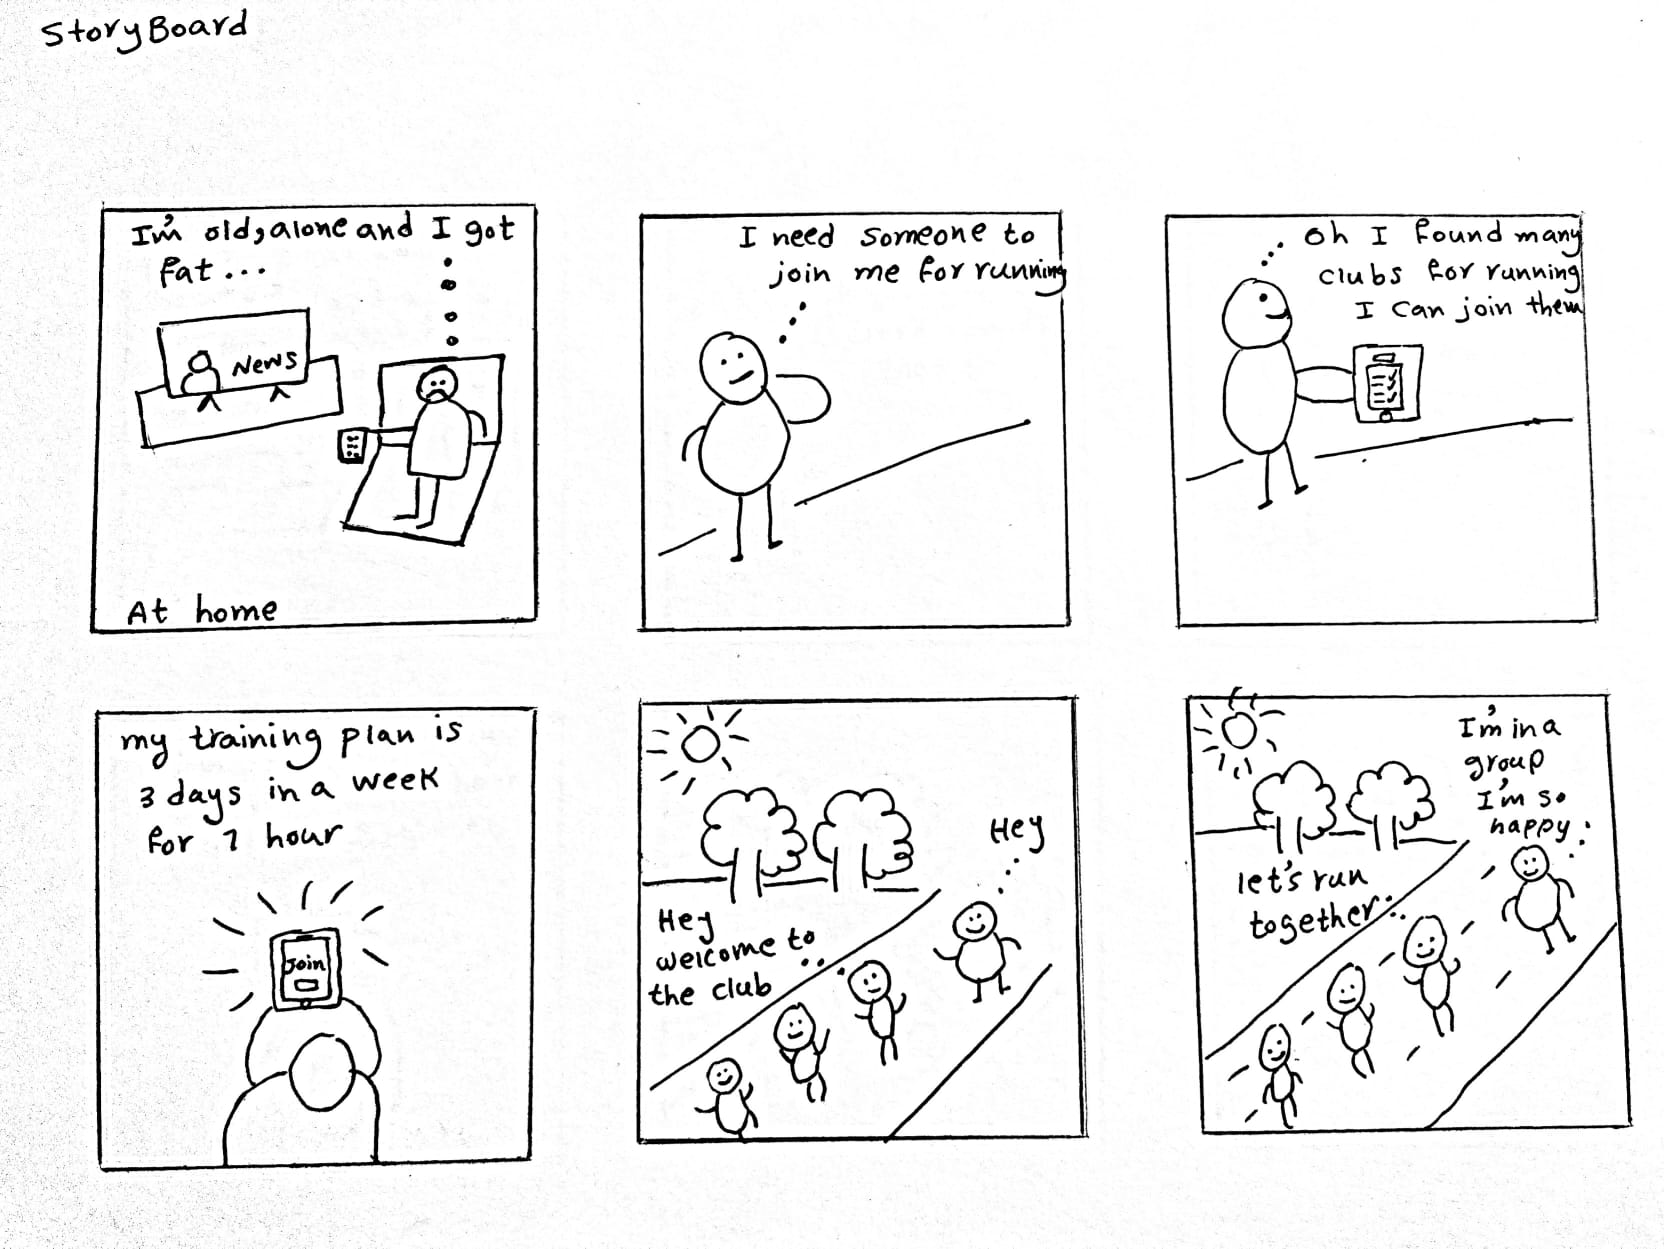 StoryBoard
I'm old, alone and I got
fat...
News
At home
I need someone to
join me for running
Oh I found many
clubs for running
I can join them
my training plan is
3 days in a week
for 1 hour
Join
Hey
Hey
welcome to
the club
I'm in a
group
I'm so
happy
let's run
together